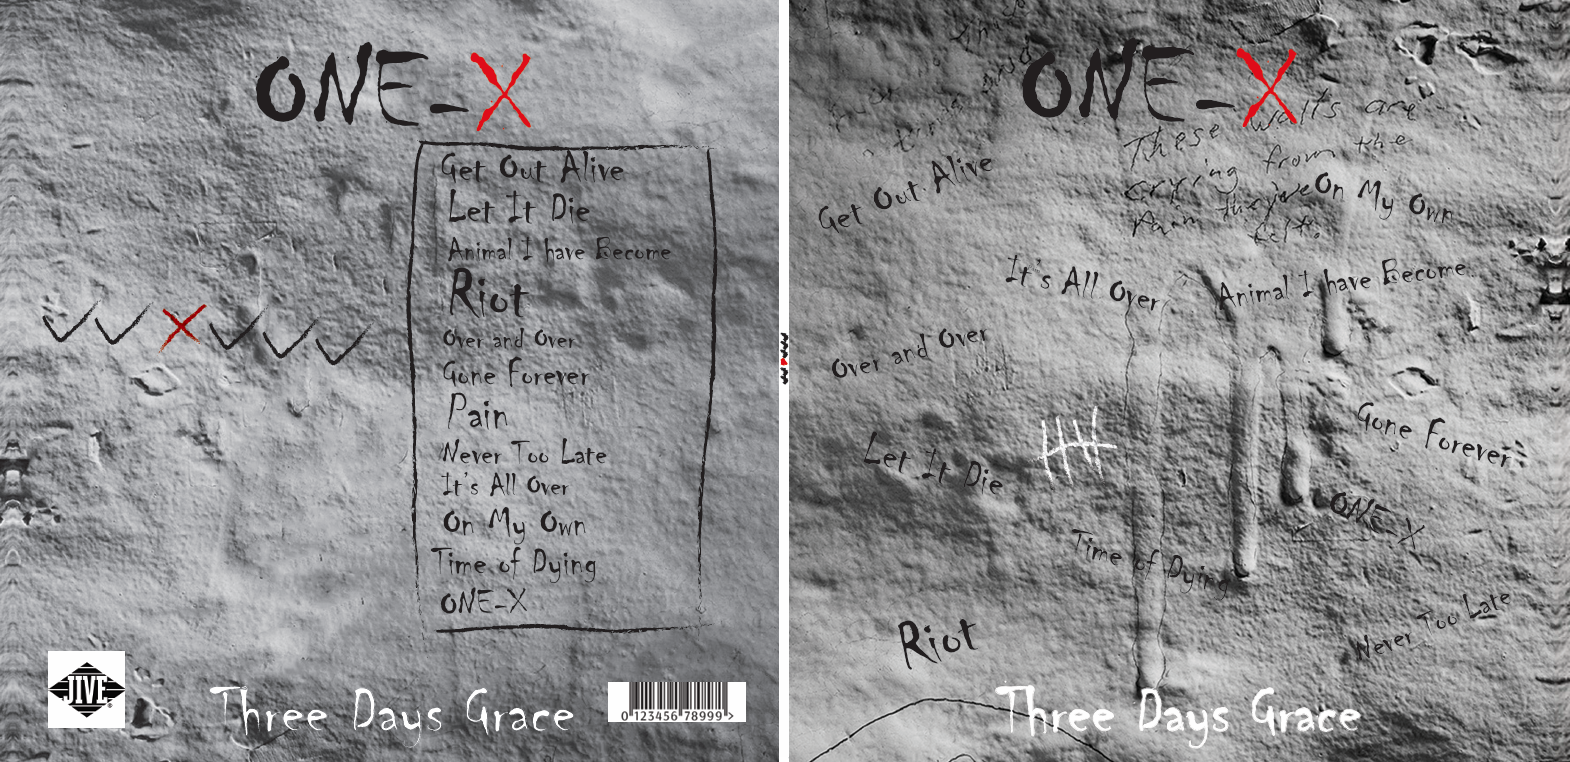 ONE-X
Get Out Alive
Let It Die
Animal I have Become
Riot
Over and Over
Gone Forever
Pain
Never Too Late
It's All Over
On My Own
Time of Dying
ONE-X
JIVE
Three Days Grace
0 123456 78999 >
ONE-X
These walls are
crying from the
Pain they've
felt.
Get Out Alive
On My Own
It's All Over
Animal I have Become
Over and Over
Gone Forever
Let It Die
ONE-X
Time of Dying
Never Too Late
Riot
Three Days Grace